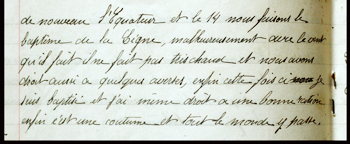 de nouveau l'Equateur et le 14 nous faisons le
baptême de la Ligne, malheureusement avec le vent
qu'il fait il ne fait pas très chaud et nous avons
droit aussi a quelques averses, enfin cette fois ci je
suis baptisé et j'ai meme droit a une bonne ration
enfin c'est une coutume et tout le monde y passe.